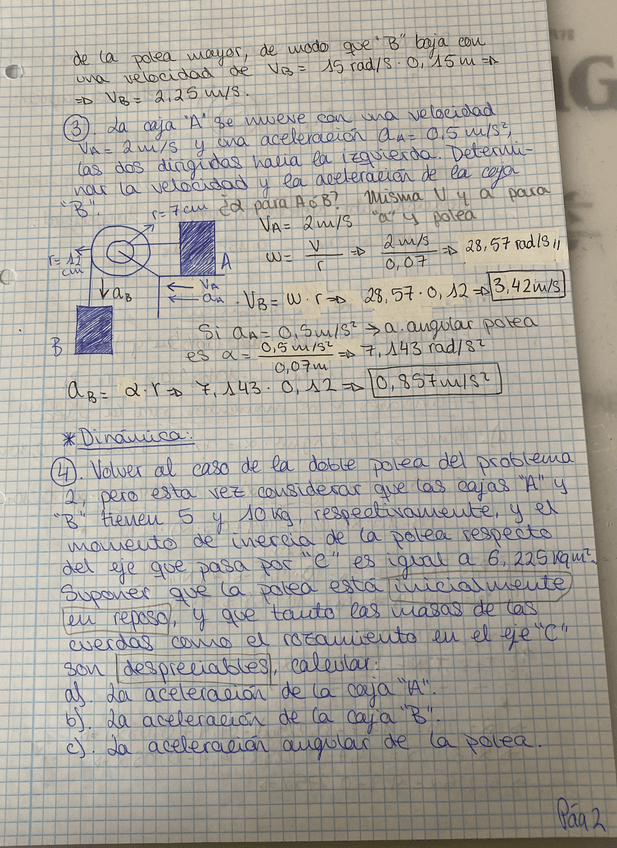 de la polea mayor, de modo que "B" baja con
una velocidad de VB = 15 rad/s · 0,15 m ⇒
⇒ VB = 2,25 m/s.
③. La caja "A" se mueve con una velocidad
VA = 2 m/s y una aceleración aA = 0,5 m/s²,
las dos dirigidas hacia la izquierda. Determi-
nar la velocidad y la aceleración de la caja
"B".
¿α para A o B? Misma V y a para
"a" y polea
r = 7 cm
r = 12 cm
A
VA
aA
aB
B
VA = 2 m/s
ω = V/r ⇒ 2 m/s / 0,07 ⇒ 28,57 rad/s //
· VB = ω · r ⇒ 28,57 · 0,12 ⇒ 3,42 m/s
Si aA = 0,5 m/s² → a. angular polea
es α = 0,5 m/s² / 0,07 m ⇒ 7,143 rad/s²
aB = α · r ⇒ 7,143 · 0,12 ⇒ 0,857 m/s²
* Dinámica:
④. Volver al caso de la doble polea del problema
2, pero esta vez considerar que las cajas "A" y
"B" tienen 5 y 10 kg, respectivamente, y el
momento de inercia de la polea respecto
del eje que pasa por "C" es igual a 6,225 kgm².
Suponer que la polea está inicialmente
en reposo, y que tanto las masas de las
cuerdas como el rozamiento en el eje "C"
son despreciables, calcular:
a). La aceleración de la caja "A".
b). La aceleración de la caja "B".
c). La aceleración angular de la polea.
Pág 2